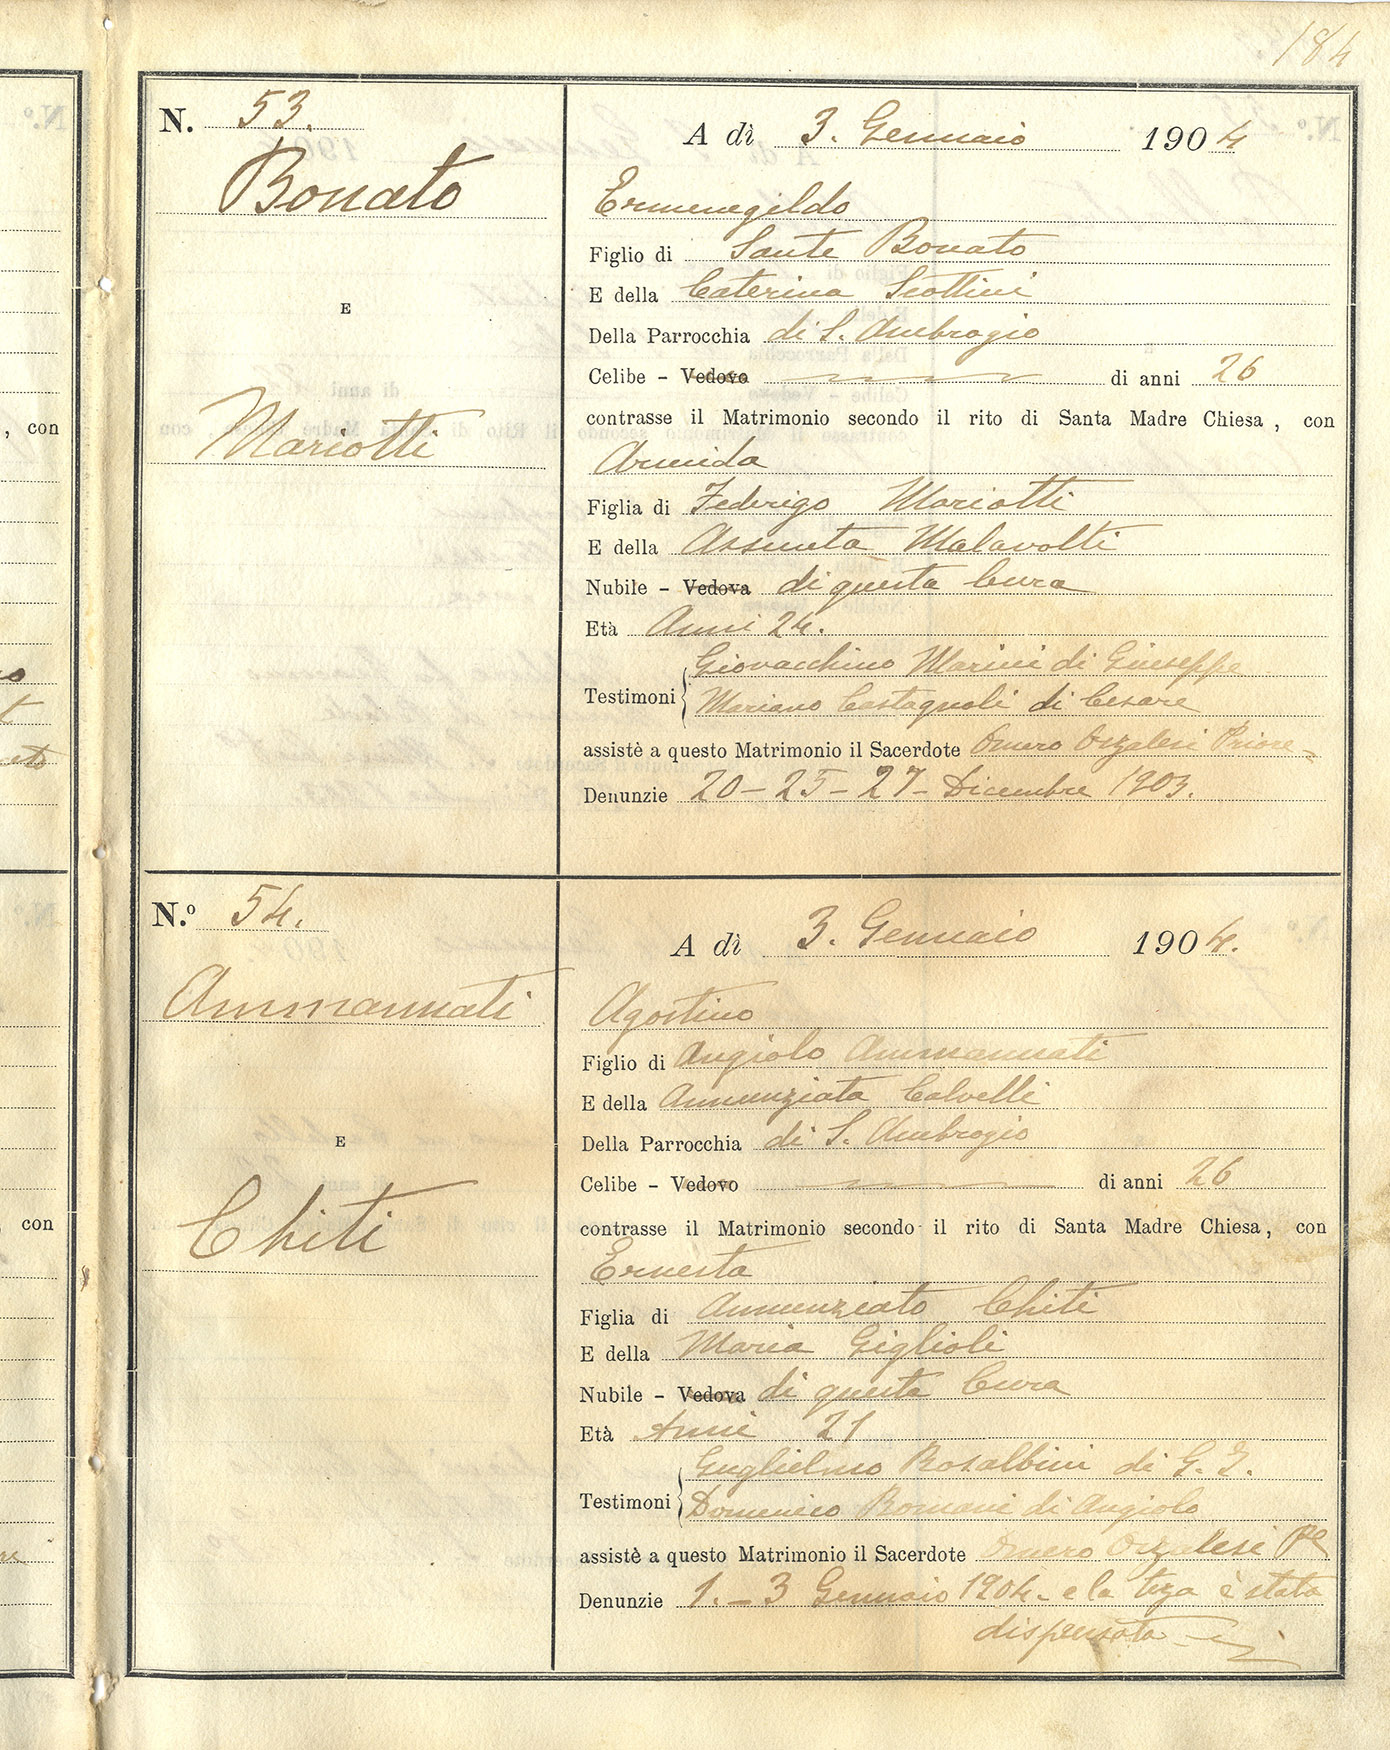 184
N. 53.
Bonato
E
Mariotti
A dì 3. Gennaio 1904
Ermenegildo
Figlio di Sante Bonato
E della Caterina Scottini
Della Parrocchia di S. Ambrogio
Celibe – Vedovo di anni 26
contrasse il Matrimonio secondo il rito di Santa Madre Chiesa, con
Armida
Figlia di Federigo Mariotti
E della Assunta Malavolti
Nubile – Vedova di questa Cura
Età Anni 24.
Giovacchino Marini di Giuseppe
Testimoni
Mariano Castagnoli di Cesare
assistè a questo Matrimonio il Sacerdote Omero Orzalesi Priore
Denunzie 20 – 25 – 27 – Dicembre 1903.
, con
N.º 54.
Ammannati
E
Chiti
A dì 3. Gennaio 1904.
Agostino
Figlio di Angiolo Ammannati
E della Annunziata Calvelli
Della Parrocchia di S. Ambrogio
Celibe – Vedovo di anni 26
contrasse il Matrimonio secondo il rito di Santa Madre Chiesa, con
Ernesta
Figlia di Annunziato Chiti
E della Maria Giglioli
Nubile – Vedova di questa Cura
Età Anni 21
Guglielmo Rosalbini di G.
Testimoni
Domenico Romani di Angiolo
assistè a questo Matrimonio il Sacerdote Omero Orzalesi
Denunzie 1. – 3 Gennaio 1904 – e la terza è stata
dispensata
con